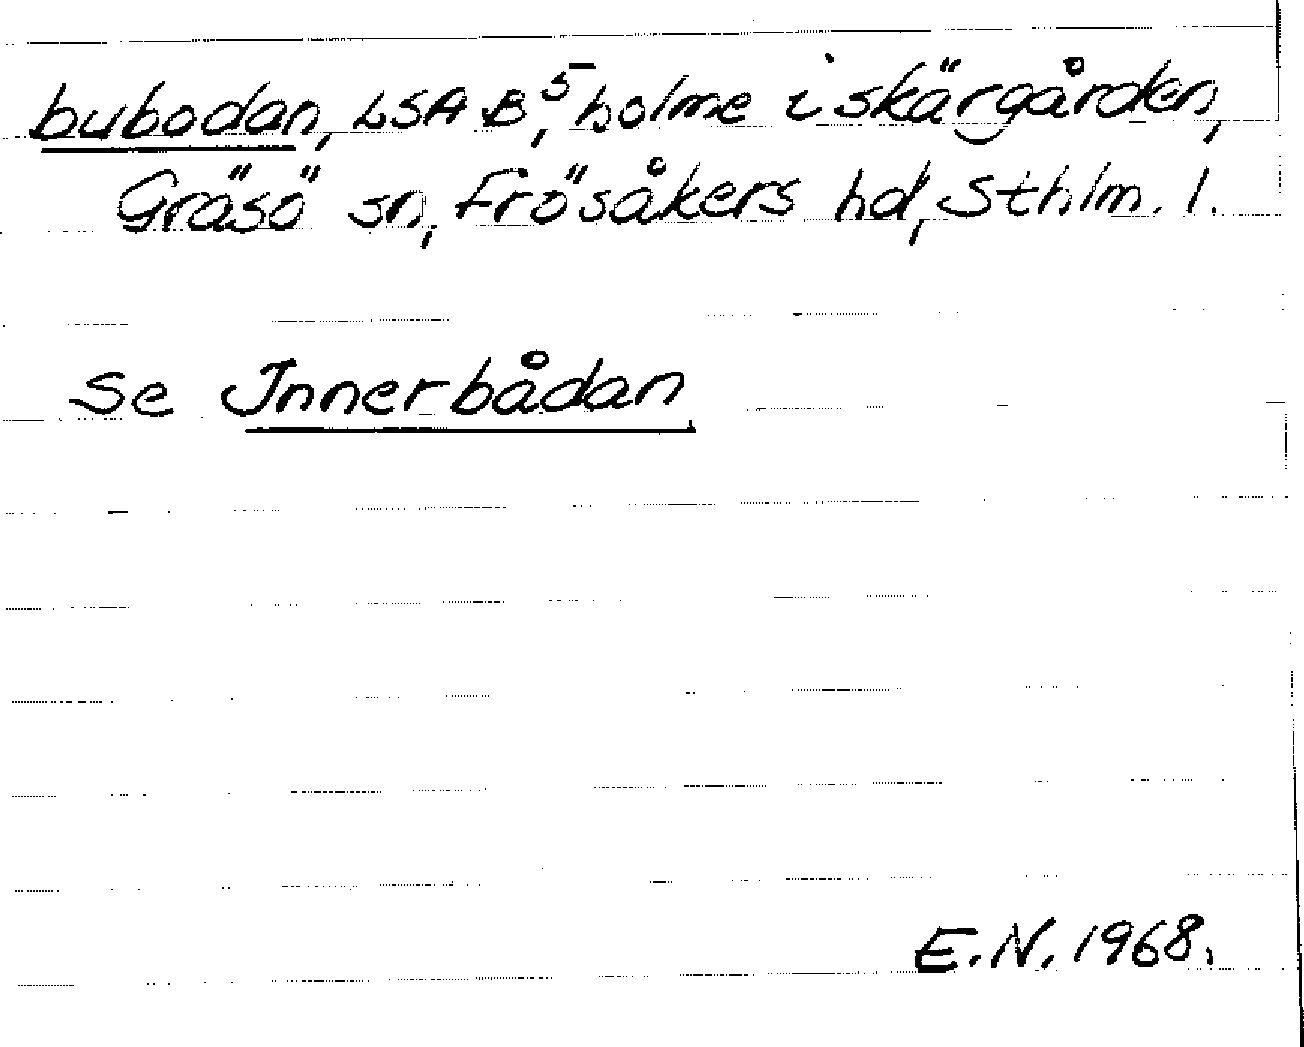 bubodan, LSA B⁵, holme i skärgården,
Gräsö sn, Frösåkers hd, Sthlm. l.
Se Innerbådan
E.N. 1968.